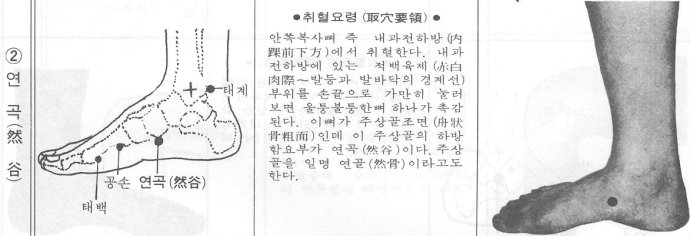 ② 연 곡 (然 谷)
태계
공손 연곡(然谷)
태백
●취혈요령(取穴要領)●
안쪽복사뼈 즉 내과전하방(內
踝前下方)에서 취혈한다. 내과
전하방에 있는 적백육제(赤白
肉際～발등과 발바닥의 경계선)
부위를 손끝으로 가만히 눌러
보면 울퉁불퉁한뼈 하나가 촉감
된다. 이뼈가 주상골조면(舟狀
骨粗面)인데 이 주상골의 하방
함요부가 연곡(然谷)이다. 주상
골을 일명 연골(然骨)이라고도
한다.